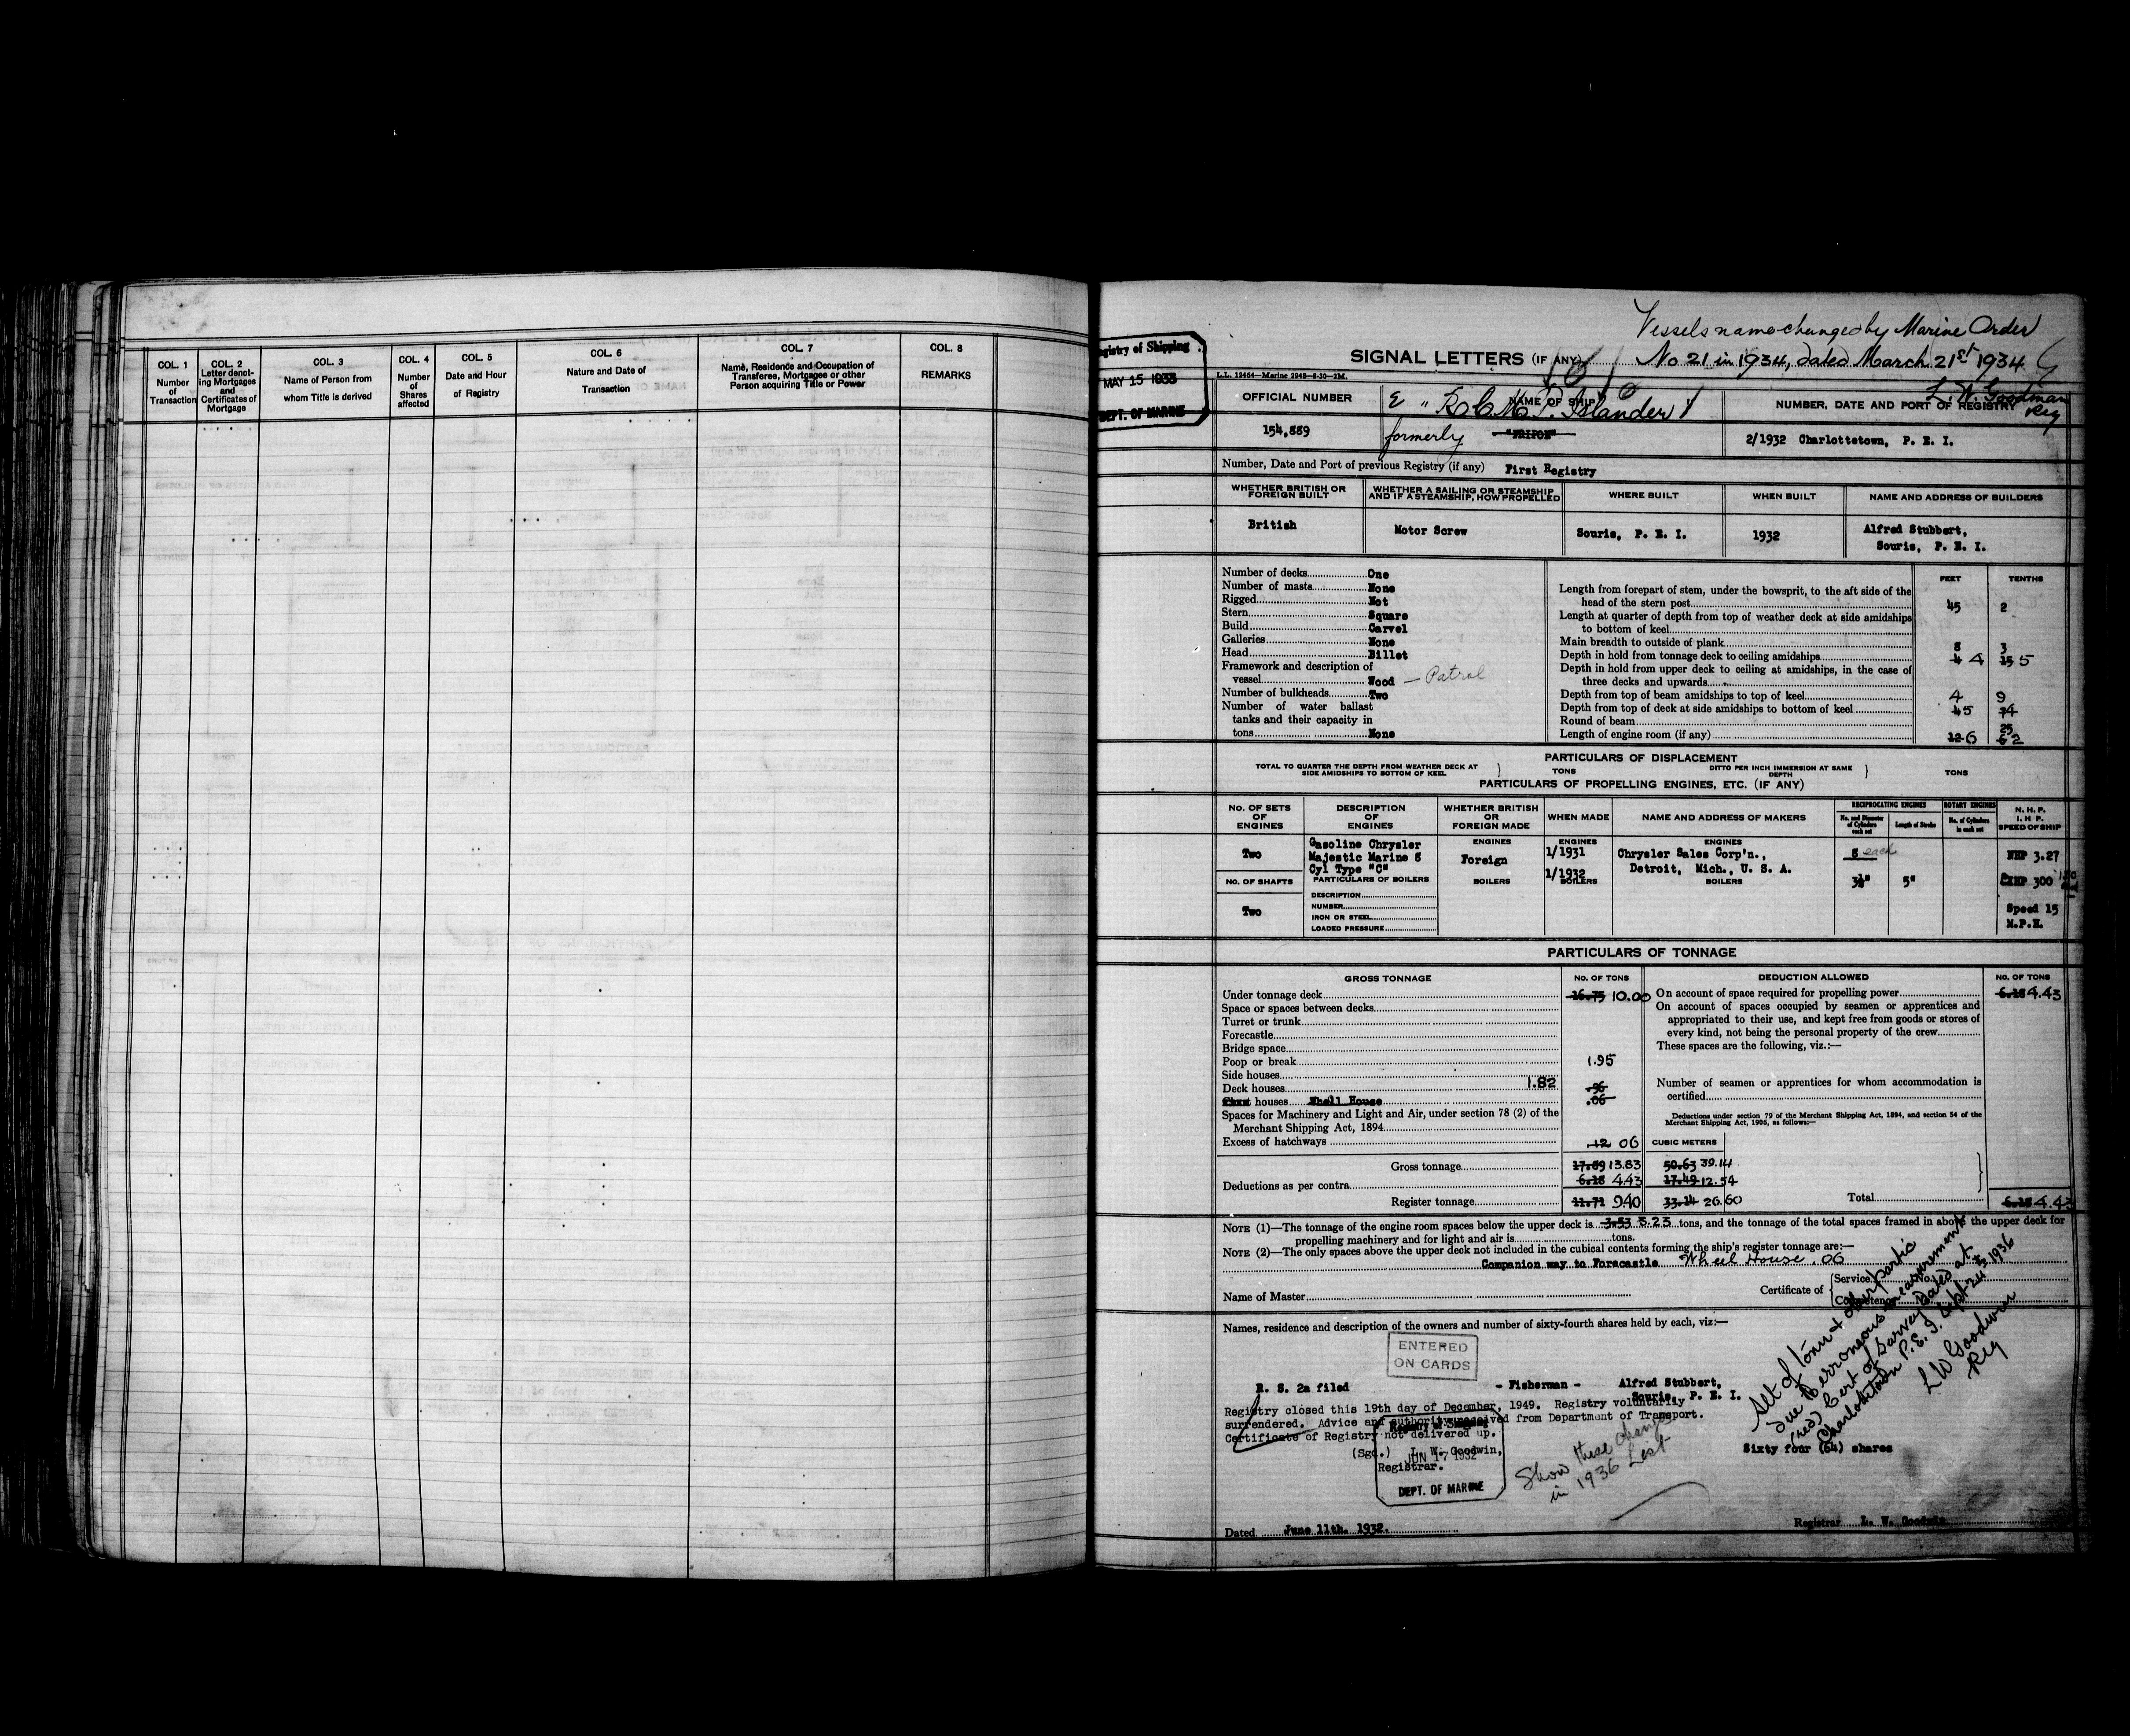 COL. 1
Number
of
Transaction
COL. 2
Letter denot-
ing Mortgages
and
Certificates of
Mortgage
COL. 3
Name of Person from
whom Title is derived
COL. 4
Number
of
Shares
affected
COL. 5
Date and Hour
of Registry
COL. 6
Nature and Date of
Transaction
COL. 7
Name, Residence and Occupation of
Transferee, Mortgagee or other
Person acquiring Title or Power
COL. 8
REMARKS
Registry of Shipping
MAY 15 1933
DEPT. OF MARINE
Vessels name changed by Marine Order
No 21 in 1934, dated March 21st 1934
L. W. Goodman
Reg
SIGNAL LETTERS (IF ANY)
L.L. 12464—Marine 2948—8-30—2M.
OFFICIAL NUMBER
NAME OF SHIP
NUMBER, DATE AND PORT OF REGISTRY
"R.C.M.P. Islander"
154,889
formerly
2/1932 Charlottetown, P. E. I.
Number, Date and Port of previous Registry (if any) First Registry
WHETHER BRITISH OR
FOREIGN BUILT
WHETHER A SAILING OR STEAMSHIP
AND IF A STEAMSHIP, HOW PROPELLED
WHERE BUILT
WHEN BUILT
NAME AND ADDRESS OF BUILDERS
British
Motor Screw
Souris, P. E. I.
1932
Alfred Stubbert,
Souris, P. E. I.
Number of decks One
Number of masts None
Rigged Not
Stern Square
Build Carvel
Galleries None
Head Billet
Framework and description of
vessel Wood — Patrol
Number of bulkheads Two
Number of water ballast
tanks and their capacity in
tons None
FEET TENTHS
Length from forepart of stem, under the bowsprit, to the aft side of the
head of the stern post 45 2
Length at quarter of depth from top of weather deck at side amidships
to bottom of keel
Main breadth to outside of plank 8 3
Depth in hold from tonnage deck to ceiling amidships 4 4 15 5
Depth in hold from upper deck to ceiling at amidships, in the case of
three decks and upwards
Depth from top of beam amidships to top of keel 4 9
Depth from top of deck at side amidships to bottom of keel 4 5 4
Round of beam 25
Length of engine room (if any) 12 6 6 2
PARTICULARS OF DISPLACEMENT
TOTAL TO QUARTER THE DEPTH FROM WEATHER DECK AT
SIDE AMIDSHIPS TO BOTTOM OF KEEL
TONS
DITTO PER INCH IMMERSION AT SAME
DEPTH
TONS
PARTICULARS OF PROPELLING ENGINES, ETC. (IF ANY)
NO. OF SETS
OF
ENGINES
DESCRIPTION
OF
ENGINES
WHETHER BRITISH
OR
FOREIGN MADE
WHEN MADE
NAME AND ADDRESS OF MAKERS
RECIPROCATING ENGINES
No. and Diameter
of Cylinders
each set
Length of Stroke
ROTARY ENGINES
No. of Cylinders
in each set
N. H. P.
I. H. P.
SPEED OF SHIP
Two
Gasoline Chrysler
Majestic Marine 8
Cyl Type "C"
ENGINES
Foreign
ENGINES
1/1931
1/1932
ENGINES
Chrysler Sales Corp'n.,
Detroit, Mich., U. S. A.
8 each
NHP 3.27
NO. OF SHAFTS
PARTICULARS OF BOILERS
BOILERS
BOILERS
BOILERS
3⅜"
5"
BHP 300
Two
DESCRIPTION
NUMBER
IRON OR STEEL
LOADED PRESSURE
Speed 15
M.P.H.
PARTICULARS OF TONNAGE
GROSS TONNAGE
NO. OF TONS
DEDUCTION ALLOWED
NO. OF TONS
Under tonnage deck 16.75 10.00
Space or spaces between decks
Turret or trunk
Forecastle
Bridge space
Poop or break 1.95
Side houses
Deck houses 1.82 .96
houses Wheel House .06
Spaces for Machinery and Light and Air, under section 78 (2) of the
Merchant Shipping Act, 1894
Excess of hatchways .12 06
CUBIC METERS
Gross tonnage 17.89 13.83 50.63 39.14
Deductions as per contra 6.18 4.43 17.49 12.54
Register tonnage 11.71 9.40 33.14 26.60
On account of space required for propelling power 6.18 4.43
On account of spaces occupied by seamen or apprentices and
appropriated to their use, and kept free from goods or stores of
every kind, not being the personal property of the crew
These spaces are the following, viz.:—
Number of seamen or apprentices for whom accommodation is
certified
Deductions under section 79 of the Merchant Shipping Act, 1894, and section 54 of the
Merchant Shipping Act, 1906, as follows:—
Total 6.18 4.43
NOTE (1)—The tonnage of the engine room spaces below the upper deck is 3.53 3.23 tons, and the tonnage of the total spaces framed in above the upper deck for
propelling machinery and for light and air is tons.
NOTE (2)—The only spaces above the upper deck not included in the cubical contents forming the ship's register tonnage are:—
Companion way to Forecastle Wheel House .06
Name of Master
Certificate of
Service No.
Competency No.
Names, residence and description of the owners and number of sixty-fourth shares held by each, viz:—
ENTERED
ON CARDS
Alt of Tonn & other partic
due to erroneous measurement
(red) Cert of Survey dated at
Charlottetown P. E. I. Sept 24th 1936
L W Goodwin
Reg
R. S. 2a filed - Fisherman - Alfred Stubbert,
Souris, P. E. I.
Registry closed this 19th day of December, 1949. Registry voluntarily
surrendered. Advice and authority received from Department of Transport.
Certificate of Registry not delivered up.
(Sgd.) L. W. Goodwin,
Registrar.
Registry of Shipping
JUN 17 1932
DEPT. OF MARINE
Show these changes
in 1936 List
Sixty four (64) shares
Dated June 11th. 1932.
Registrar L. W. Goodwin